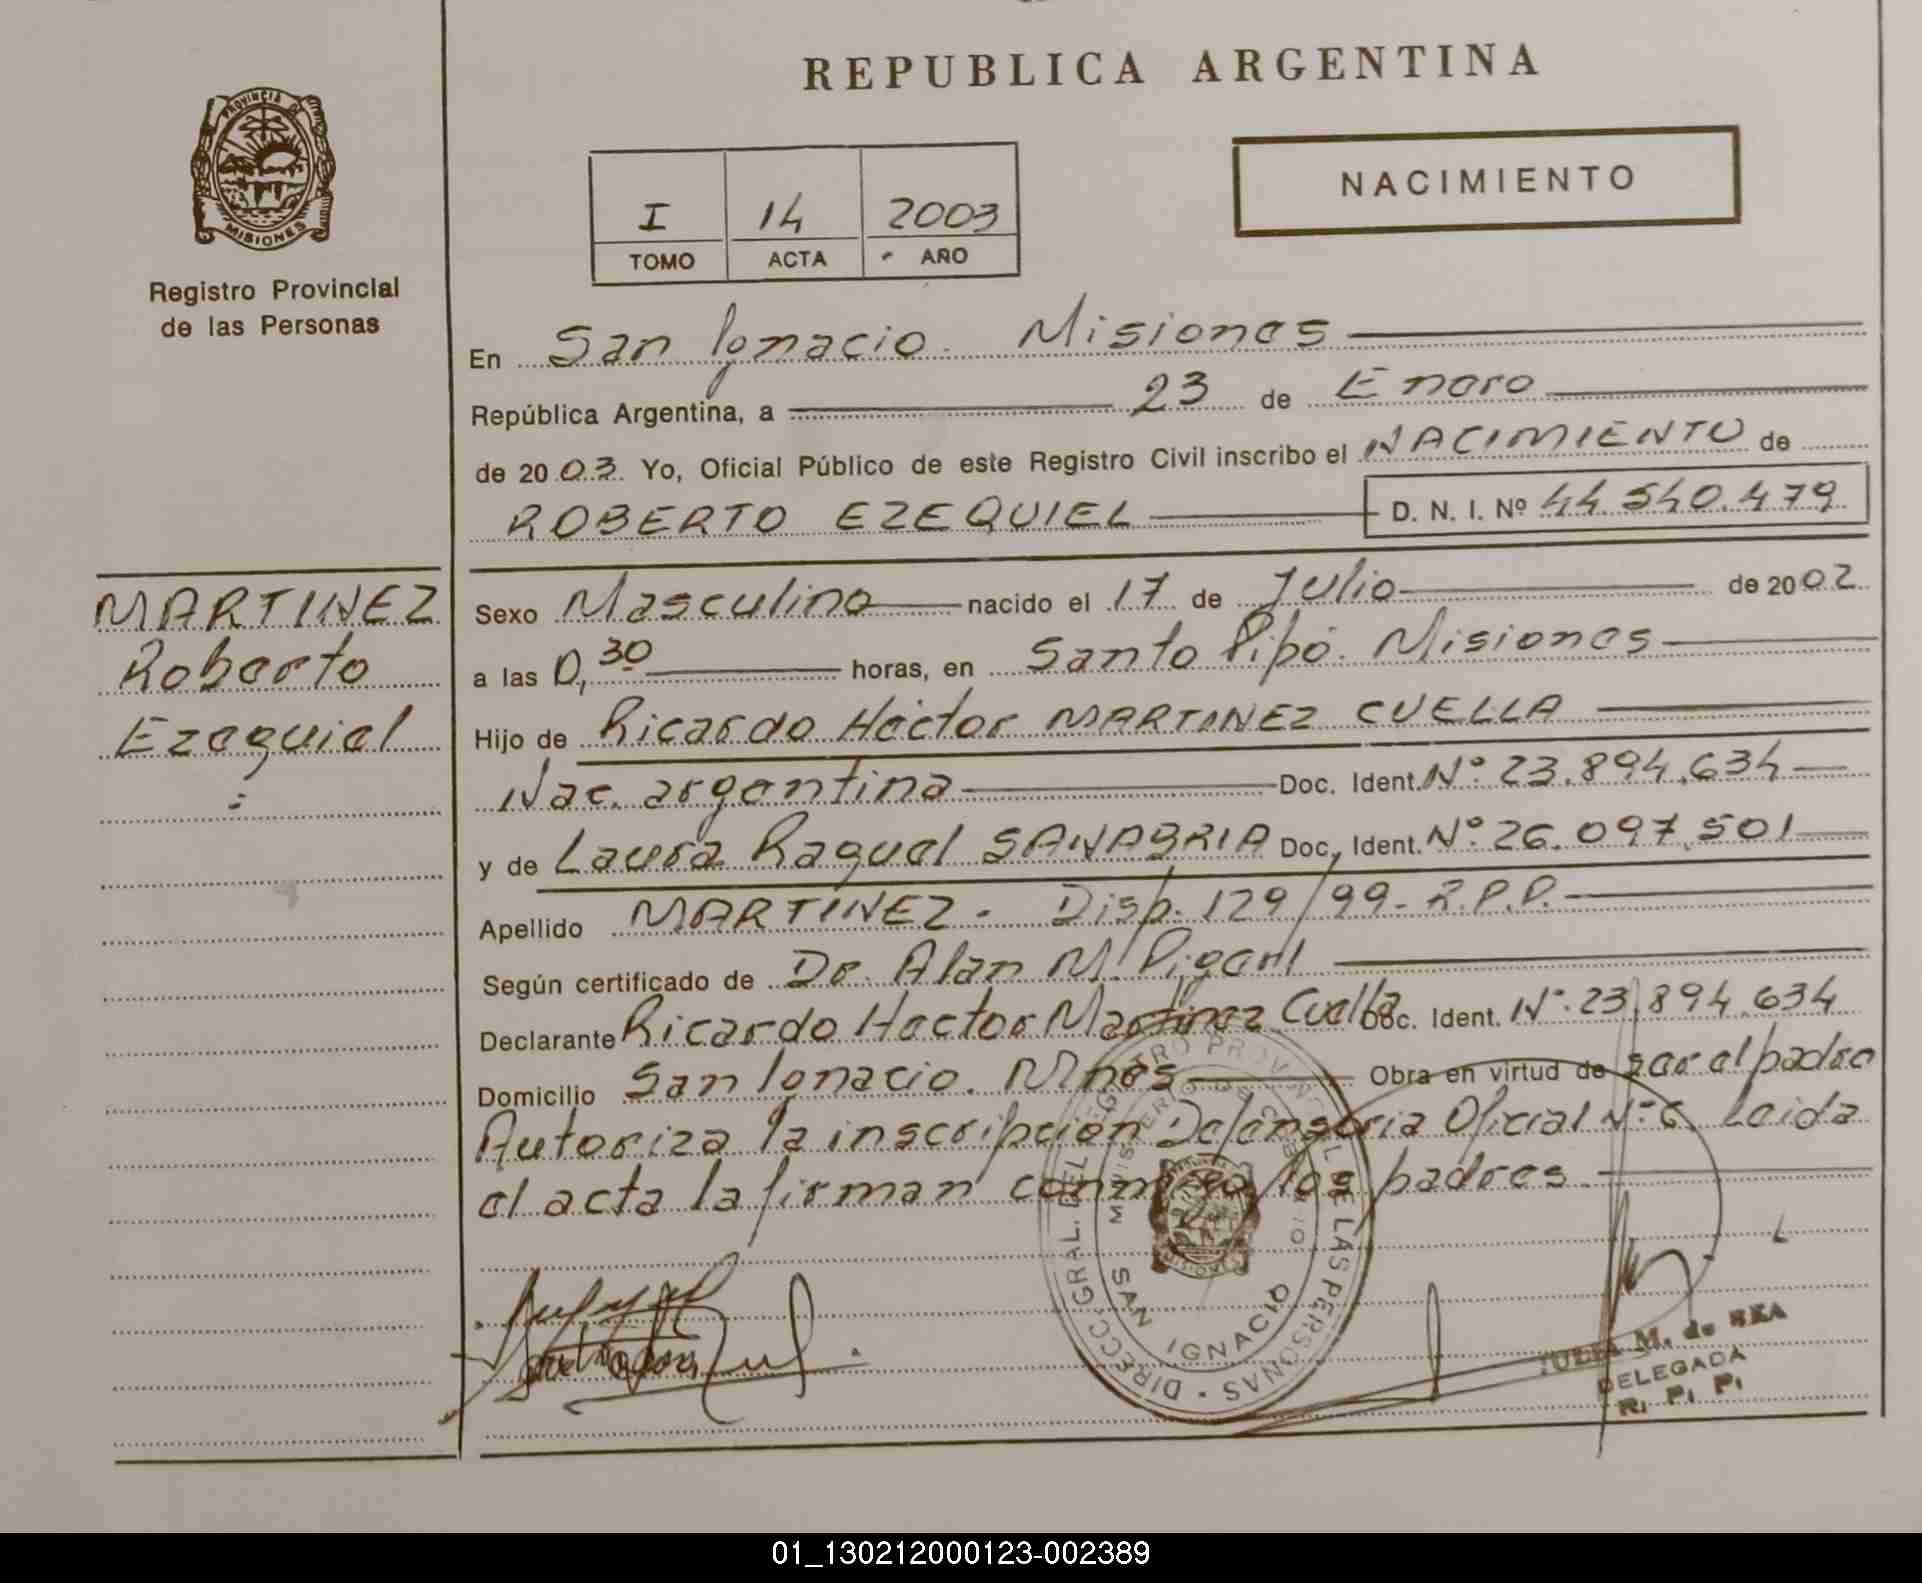 REPUBLICA ARGENTINA
PROVINCIA DE
MISIONES
Registro Provincial
de las Personas
I 14 2003
TOMO ACTA AÑO
NACIMIENTO
En San Ignacio. Misiones
República Argentina, a 23 de Enero
de 2003. Yo, Oficial Público de este Registro Civil inscribo el NACIMIENTO de
ROBERTO EZEQUIEL D. N. I. Nº 44.540.479
MARTINEZ
Roberto
Ezequiel
Sexo Masculino nacido el 17 de Julio de 2002
a las 0,30 horas, en Santo Pipó. Misiones
Hijo de Ricardo Héctor MARTINEZ CUELLA
Nac. argentina Doc. Ident. Nº 23.894.634
y de Laura Raquel SANABRIA Doc. Ident. Nº 26.097.501
Apellido MARTINEZ. Disp. 129/99- R.P.P.
Según certificado de Dr. Alan M.
Declarante Ricardo Hector Martinez Cuella Doc. Ident. Nº 23.894.634
Domicilio San Ignacio. Mnes Obra en virtud de ser el padre
Autoriza la inscripción Defensoria Oficial Nº 6. Leida
el acta la firman conmigo los padres.
DIRECC. GRAL. DEL REGISTRO PROVINCIAL DE LAS PERSONAS
MINISTERIO DE GOBIERNO
SAN IGNACIO
JULIA M. de REA
DELEGADA
R. P. P.
01_130212000123-002389